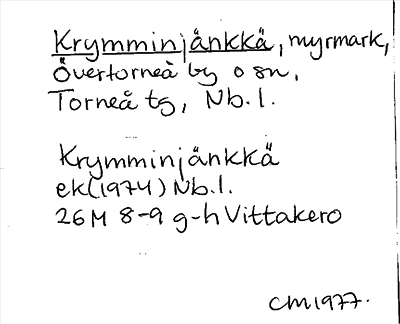 Krymminjänkkä, myrmark,
Övertorneå by o sn,
Torneå tg, Nb.l.
Krymminjänkkä
ek(1974) Nb.l.
26M 8-9 g-h Vittakero
CM1977.